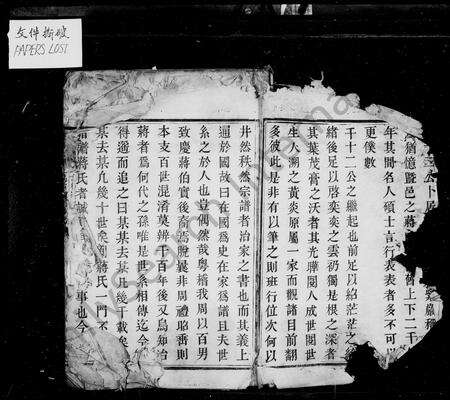 文件撕破
PAPERS LOST
猶憶暨邑之蔣
皆上下二千
年其間名人碩士言行表表者多不可以
更僕數
千十二公之繼起也前足以紹茫茫之
緒後足以啓奕奕之雲礽獨是根之深者
其葉茂膏之沃者其光曄閥人成世閱世
生人溯之黃炎原屬一家而觀諸目前翻
多彼此是非有以筆之則班行位次何以
井然秩然宗譜者治家之書也而其義上
通於國故曰在國為史在家為譜且夫世
系之於人也豈偶然哉粵稽我周以百男
致慶蔣伯實後裔焉脫曩非周禮昭垂則
本支百世混淆莫辨千百年後又烏知治
蔣者為何代之孫唯是世系相傳迄今
得遡而追之曰某某去某几幾千載矣
某去某几幾十世矣
蔣氏一門不
譜蔣氏者
事也今